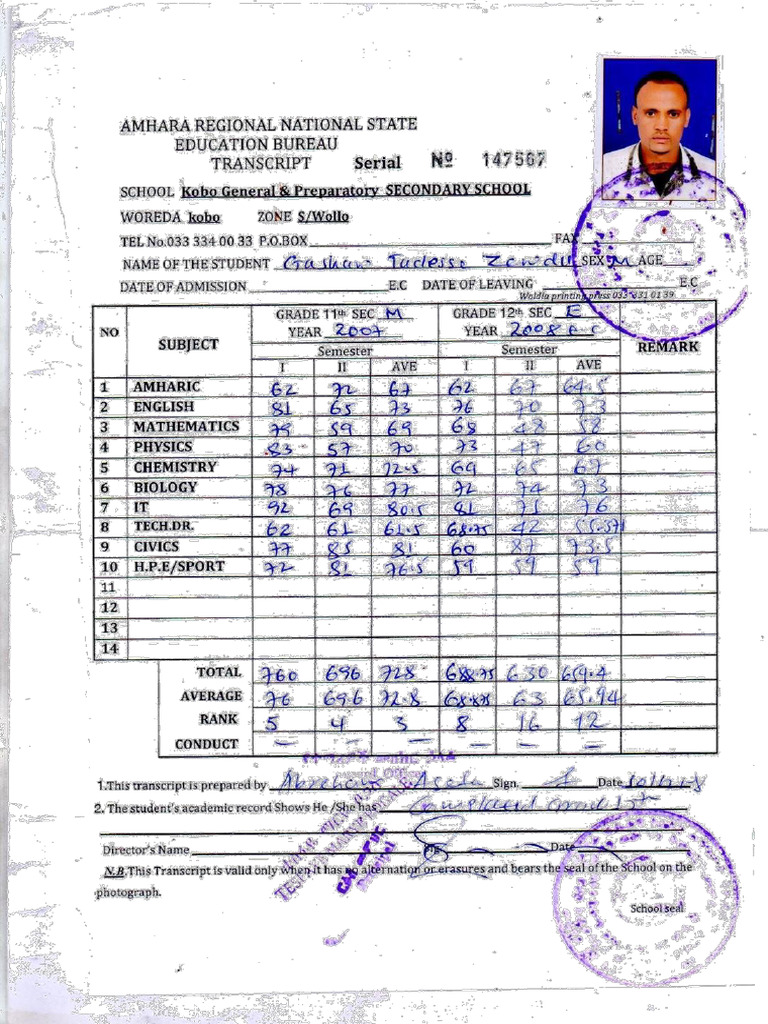 AMHARA REGIONAL NATIONAL STATE
EDUCATION BUREAU
TRANSCRIPT Serial Nº 147567
SCHOOL Kobo General & Preparatory SECONDARY SCHOOL
WOREDA kobo ZONE S/Wollo
TEL No.033 334 00 33 P.O.BOX FAX
NAME OF THE STUDENT Gashaw Tadesse Zewdu SEX M AGE
DATE OF ADMISSION E.C DATE OF LEAVING E.C
Woldia printing press 033 331 01 39
NO SUBJECT GRADE 11th SEC M GRADE 12th SEC E REMARK
YEAR 2007 YEAR 2008 E.C
Semester Semester
I II AVE I II AVE
1 AMHARIC 62 72 67 62 67 64.5
2 ENGLISH 81 65 73 76 70 73
3 MATHEMATICS 79 59 69 68 48 58
4 PHYSICS 83 57 70 73 47 60
5 CHEMISTRY 74 71 72.5 69 65 67
6 BIOLOGY 78 76 77 72 74 73
7 IT 92 69 80.5 81 71 76
8 TECH.DR. 62 61 61.5 68.75 42 55.371
9 CIVICS 77 85 81 60 87 73.5
10 H.P.E/SPORT 72 81 76.5 59 59 59
11
12
13
14
TOTAL 760 696 728 688.75 630 659.4
AVERAGE 76 69.6 72.8 68.875 63 65.94
RANK 5 4 3 8 16 12
CONDUCT — — — — — —
1.This transcript is prepared by Abreham Asefa Sign. Date
2. The student's academic record Shows He /She has Completed Grade 12th
Director's Name Sig Date
N.B.This Transcript is valid only when it has no alternation or erasures and bears the seal of the School on the
photograph.
School seal